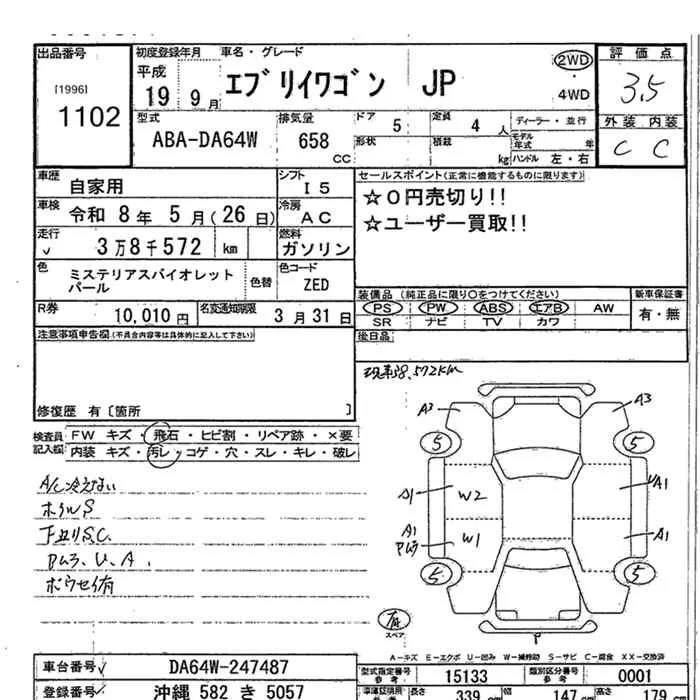 出品番号 初度登録年月 車名・グレード 2WD 評価点
[1996] 平成 エブリイワゴン JP 3.5
1102 19 9月 4WD
型式 排気量 ドア 5 定員 4人 ディーラー・並行 外装 内装
ABA-DA64W 658 CC 形状 積載 kg モデル年式 年 C C
ハンドル 左・右
車歴 自家用 シフト I5 セールスポイント(正常に機能するものに限ります)
車検 令和 8年 5月(26日) 冷房 AC ☆0円売切り!!
走行 3万8千572 km 燃料 ガソリン ☆ユーザー買取!!
色 ミステリアスバイオレットパール 色替 色コード ZED
装備品 (純正品に限り○をつけてください) 新車保証書
R券 10,010円 名変通知期限 3月31日 PS PW ABS エアB AW 有・無
SR ナビ TV カワ
注意事項申告欄(不具合内容等は具体的に記入して下さい) 後日品
現車38,572KM
修復歴 有〔箇所 〕
検査員記入欄 FW キズ・飛石・ヒビ割・リペア跡・×要
内装 キズ・汚レ・コゲ・穴・スレ・キレ・破レ
A/C冷えない
下廻りS.C.
A3 A3
5 5
W2
A1 W1 A1
5 5
スペア P
A-キズ E-エクボ U-凹み W-補修跡 S-サビ C-腐食 XX-交換済
車台番号 DA64W-247487 型式指定番号 参考 15133 類別区分番号 参考 0001
登録番号 沖縄 582 き 5057 長さ 339 cm 幅 147 cm 高さ 179 cm